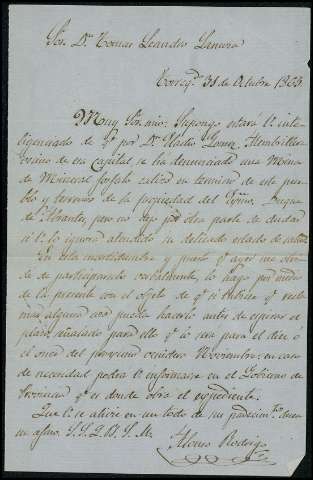 Sor. Dn. Tomas Leandro Lancora
31 de Octubre 1863.
Muy Sor. mio: Supongo estará V. inte-
ligenciado de q. por Dn. Eladio
vecino de esa capital, se ha denunciado una Mina
de Mineral fosfato calizo en termino de este pue-
blo y terreno de la propiedad del Duque
de Abrantes, pero no dejo por otra parte de dudar
si V. lo ignora atendido su delicado estado de salud.
En esta incertidumbre y puesto q. ayer me olvi-
dé de participarselo verbalmente, lo hago por medio
de la presente con el objeto de q. si
mar alguna cosa pueda hacerlo antes de espirar el
plazo señalado para ello q. lo sera para el diez ó
el once del procsimo venidero Noviembre: en caso
de necesidad podrá V. informarse en el Gobierno de
Provincia q. es donde obra el espediente.
Que V. se alivie en un todo de su padecimto. desea
su afmo. S. S. Q. B. S. M.
Alonso Rodrigo